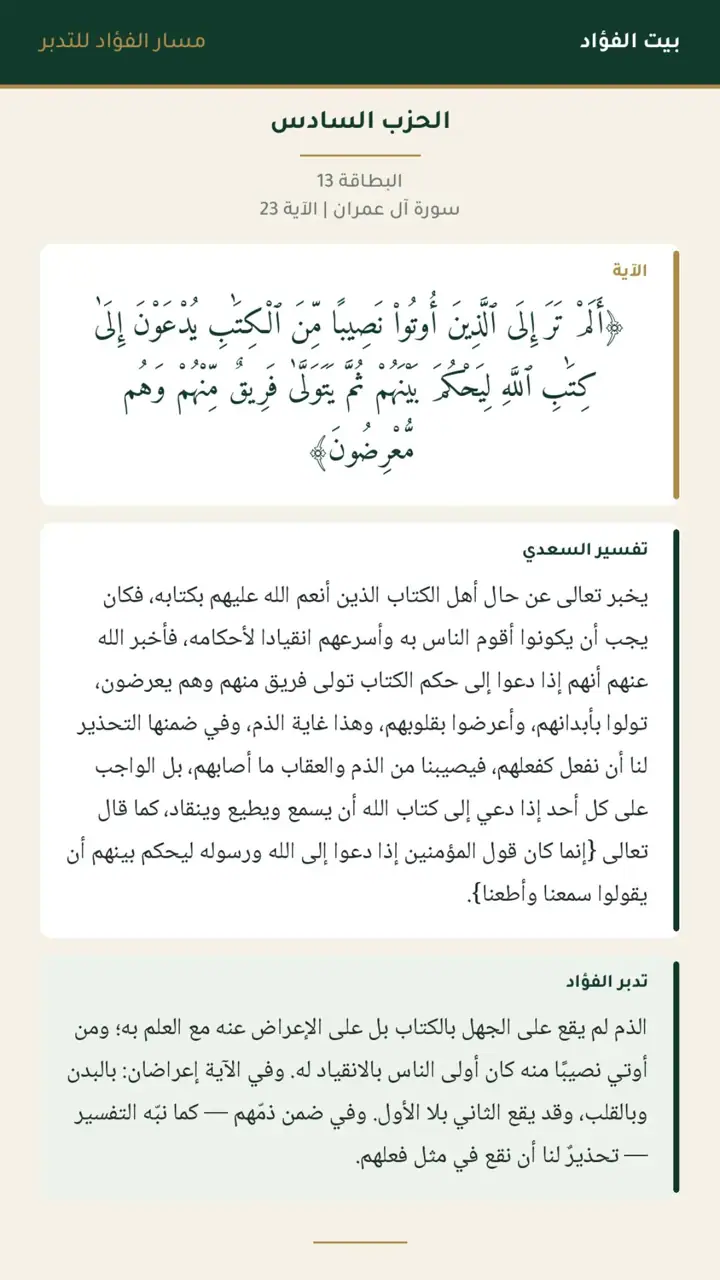 بيت الفؤاد
مسار الفؤاد للتدبر
الحزب السادس
البطاقة 13
سورة آل عمران | الآية 23
الآية
﴿أَلَمْ تَرَ إِلَى ٱلَّذِينَ أُوتُوا۟ نَصِيبًا مِّنَ ٱلْكِتَٰبِ يُدْعَوْنَ إِلَىٰ
كِتَٰبِ ٱللَّهِ لِيَحْكُمَ بَيْنَهُمْ ثُمَّ يَتَوَلَّىٰ فَرِيقٌ مِّنْهُمْ وَهُم
مُّعْرِضُونَ﴾
تفسير السعدي
يخبر تعالى عن حال أهل الكتاب الذين أنعم الله عليهم بكتابه، فكان
يجب أن يكونوا أقوم الناس به وأسرعهم انقيادا لأحكامه، فأخبر الله
عنهم أنهم إذا دعوا إلى حكم الكتاب تولى فريق منهم وهم يعرضون،
تولوا بأبدانهم، وأعرضوا بقلوبهم، وهذا غاية الذم، وفي ضمنها التحذير
لنا أن نفعل كفعلهم، فيصيبنا من الذم والعقاب ما أصابهم، بل الواجب
على كل أحد إذا دعي إلى كتاب الله أن يسمع ويطيع وينقاد، كما قال
تعالى {إنما كان قول المؤمنين إذا دعوا إلى الله ورسوله ليحكم بينهم أن
يقولوا سمعنا وأطعنا}.
تدبر الفؤاد
الذم لم يقع على الجهل بالكتاب بل على الإعراض عنه مع العلم به؛ ومن
أوتي نصيبًا منه كان أولى الناس بالانقياد له. وفي الآية إعراضان: بالبدن
وبالقلب، وقد يقع الثاني بلا الأول. وفي ضمن ذمّهم — كما نبّه التفسير
— تحذيرٌ لنا أن نقع في مثل فعلهم.